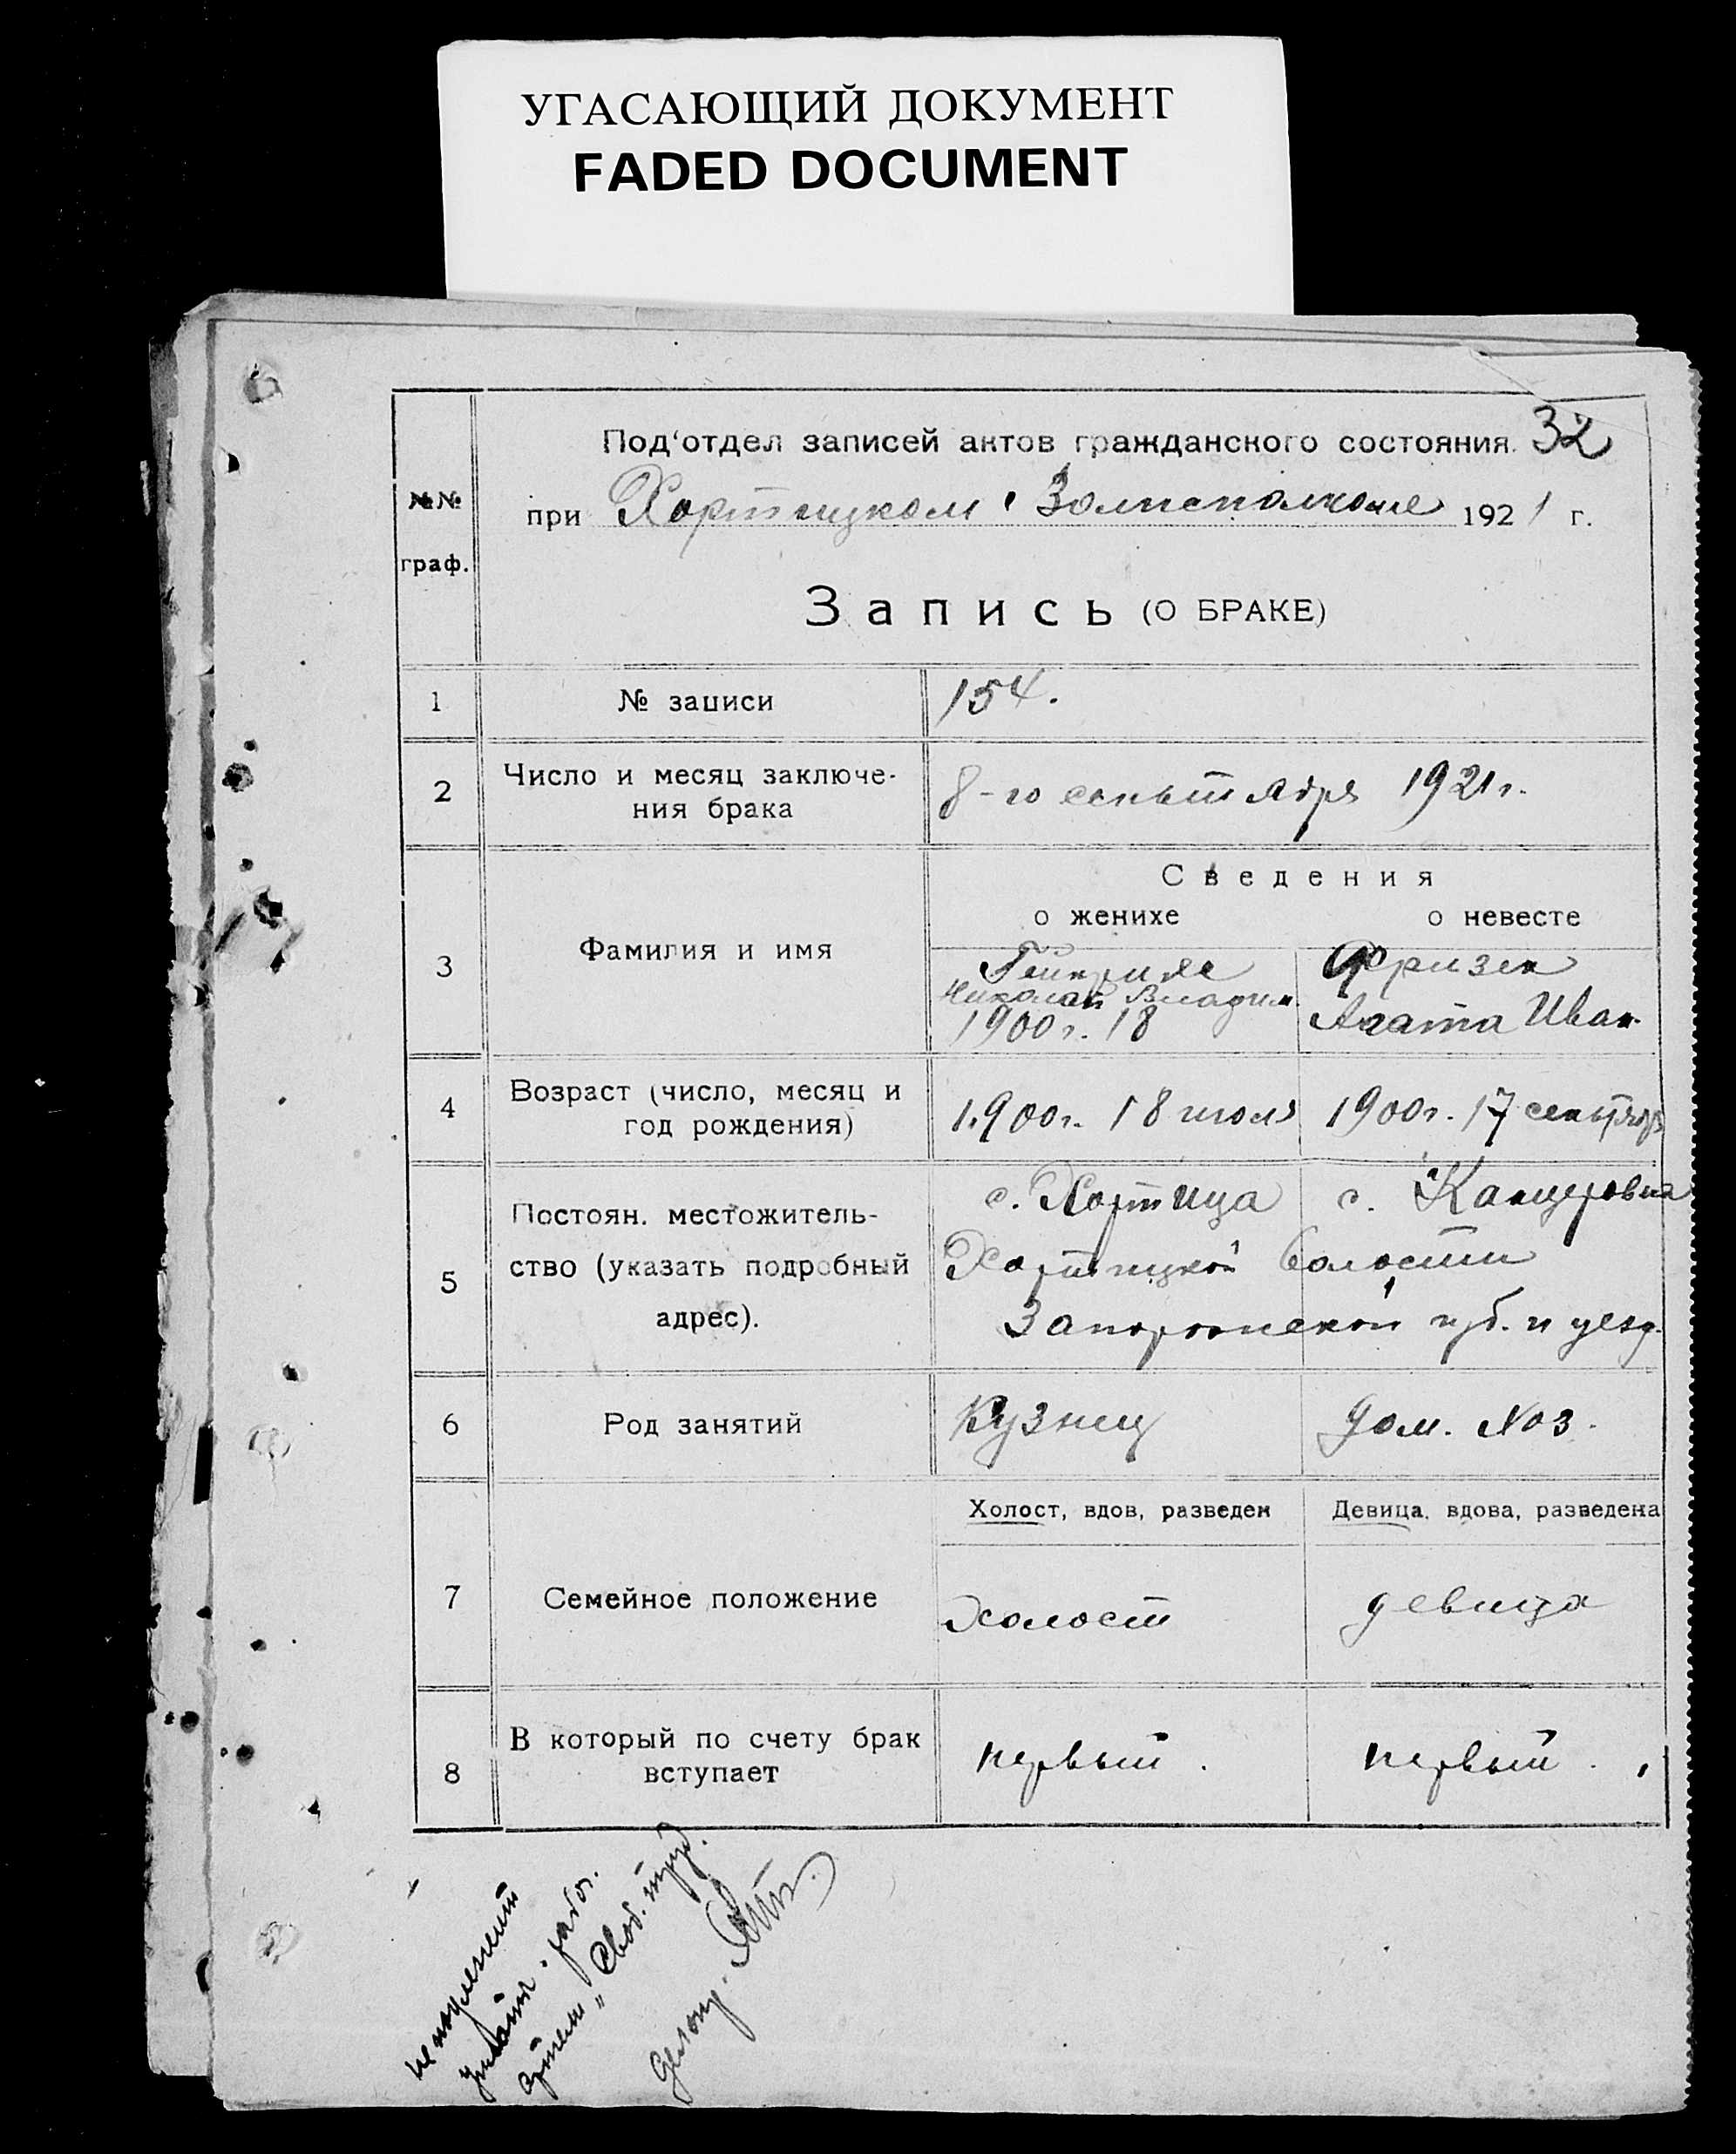 УГАСАЮЩИЙ ДОКУМЕНТ
FADED DOCUMENT
Под'отдел записей актов гражданского состояния. 32
№№ граф.
при Хортицком Волисполкоме 1921 г.
Запись (О БРАКЕ)
1 № записи 154.
2 Число и месяц заключе-
ния брака 8-го сентября 1921 г.
Сведения
о женихе о невесте
3 Фамилия и имя
Гейнрихс Фризен
Николай Владим. Агата Иван.
1900 г. 18
4 Возраст (число, месяц и
год рождения) 1900 г. 18 июля 1900 г. 17 сентября
5 Постоян. местожитель-
ство (указать подробный
адрес).
с. Хортица с. Канцеровка
Хортицкой волости
Запорожской губ. и уезд.
6 Род занятий Кузнец Дом. хоз.
Холост, вдов, разведен Девица, вдова, разведена
7 Семейное положение холост девица
8 В который по счету брак
вступает первый. первый.
не подлежит
работ.
„Свод. труд.
Делопр.